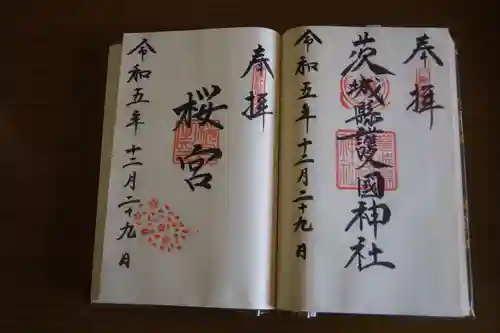 奉拝
茨城縣護國神社
令和五年十二月二十九日
奉拝
桜宮
令和五年十二月二十九日